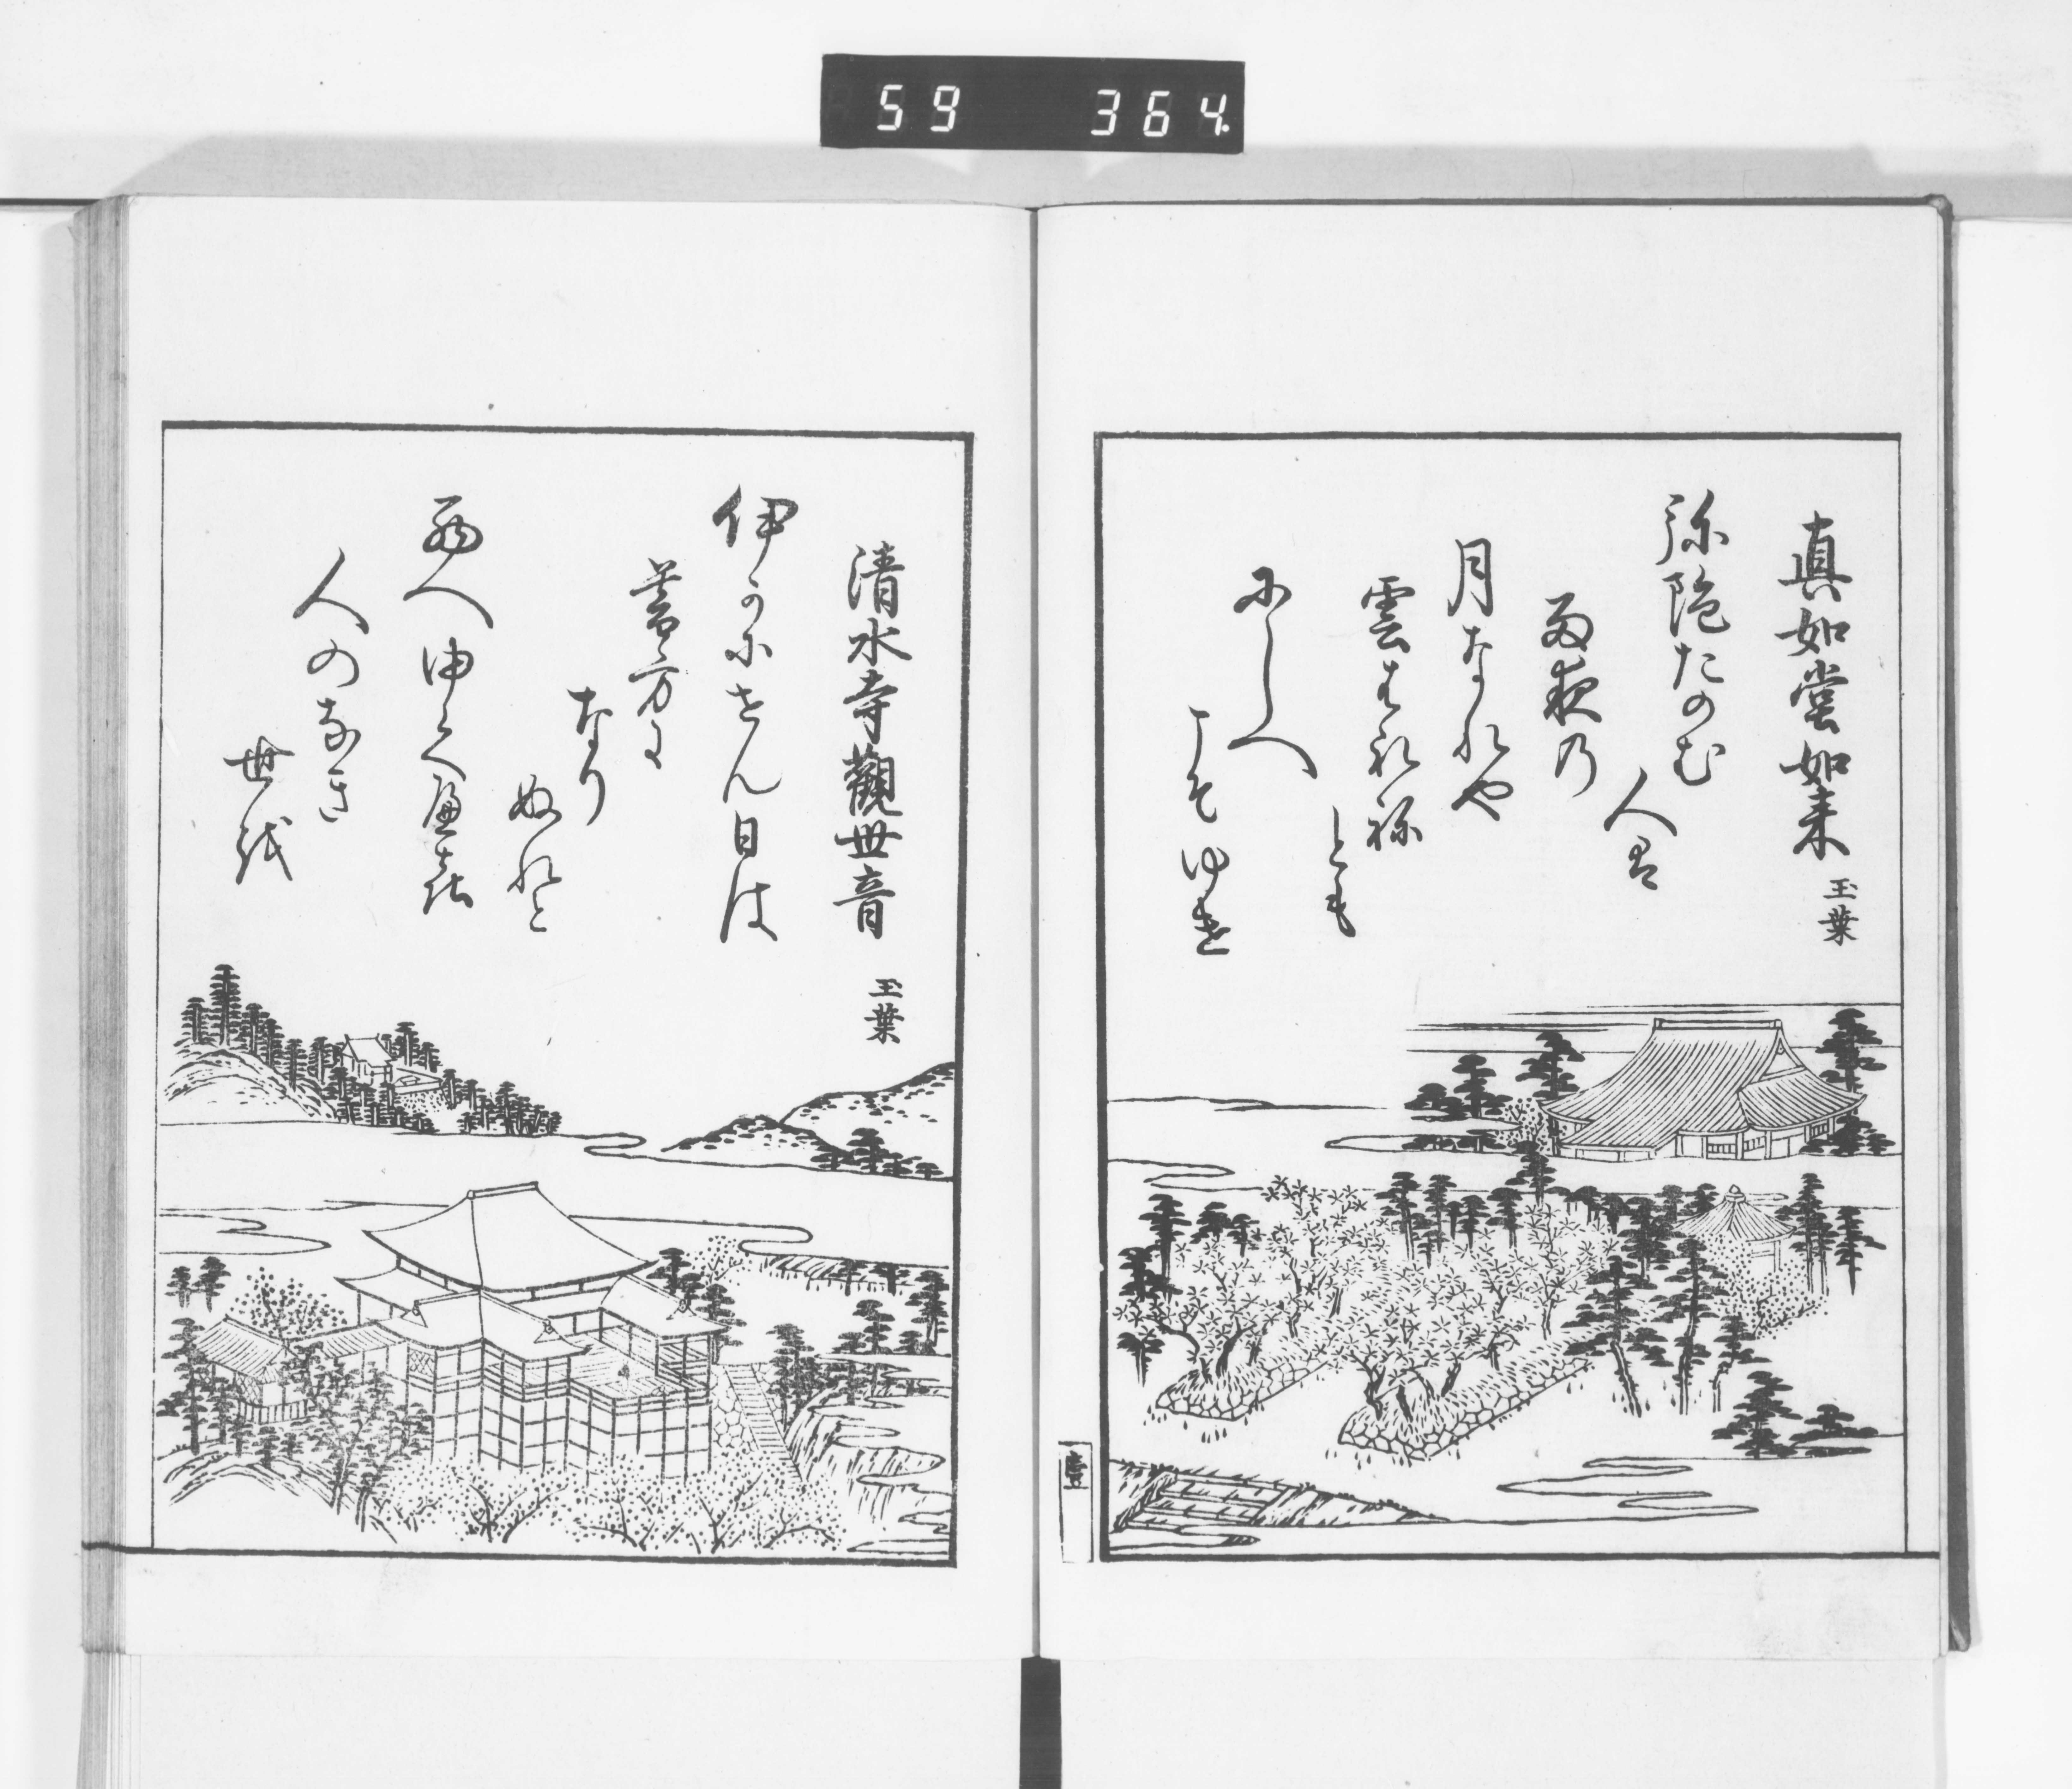 59 364.
真如堂如来 玉葉
弥陀たのむ
人は
雨夜乃
月なれや
雲はれ祢
とも
にしへ
こそゆけ
壹
清水寺觀世音 玉葉
伊かにせん日は
暮方に
なり
ぬれと
西へゆくへき
人のなき
世越